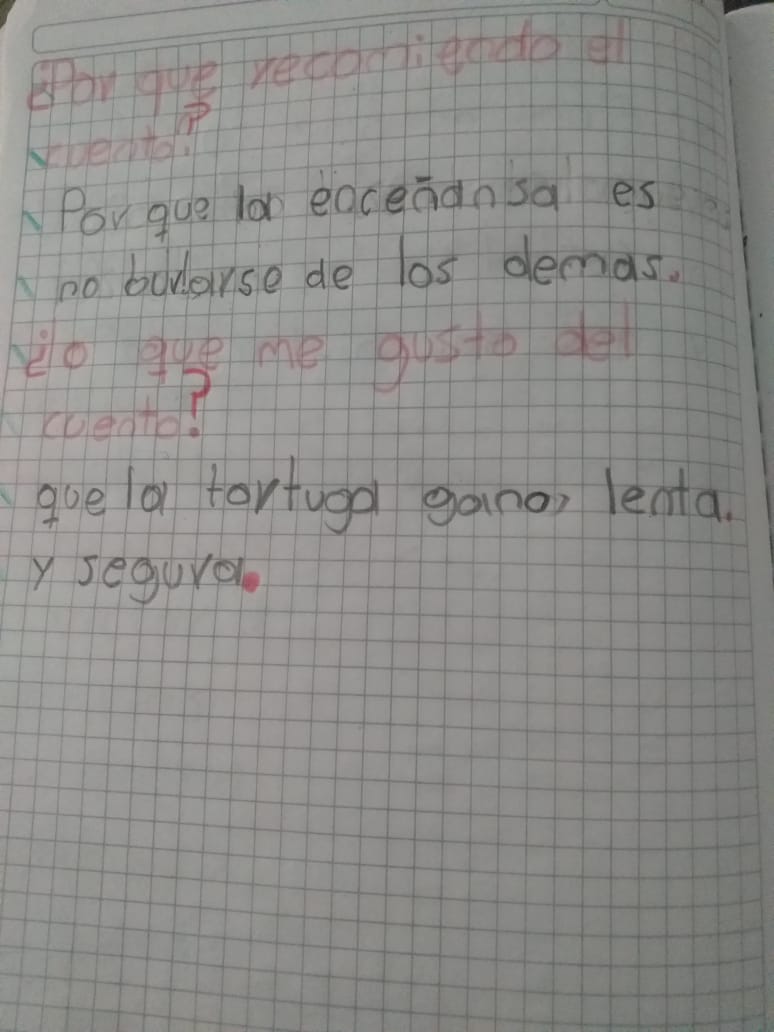 ¿Por que recomiendo el
cuento?
Por que la enceñansa es
no burlarse de los demas.
¿lo que me gusto del
cuento?
que la tortuga gano, lenta.
y segura.